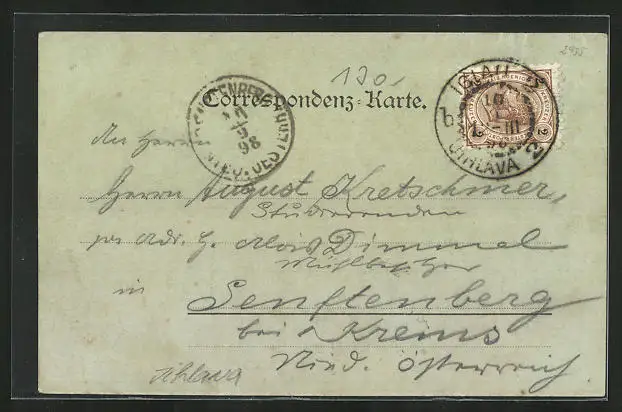 2955
130,
Correspondenz-Karte.
IGLAU
JIHLAVA
SENFTENBERG
98
2 2
An Herrn
Herrn August Kretschmer,
Studierenden
per Adr. H. Alois Dimmel
Mühlbesitzer
in
Senftenberg
bei Krems
Nied. Österreich.
Jihlava